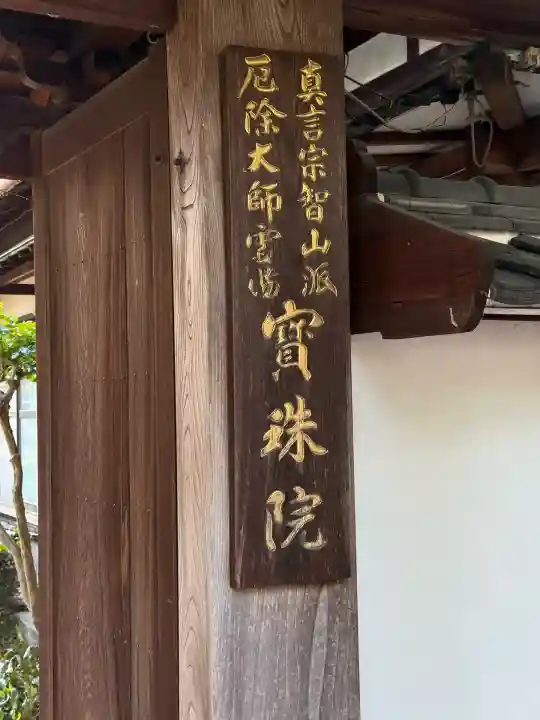 真言宗智山派
厄除大師霊場
寳珠院